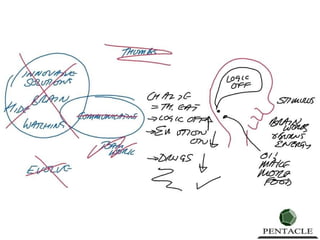 THUMBS
INNOVATIVE
SOLUTIONS
HIDE
BRAIN
WASHING
COMMUNICATING
TEAM
WORK
EVOLVE
CHANGE
= THREAT
→ LOGIC OFF
→ EMOTION
ON
→ DRUGS
LOGIC
OFF
STIMULUS
BRAIN
WORK
REQUIRES
ENERGY
MAKE
MORE
FOOD
PENTACLE